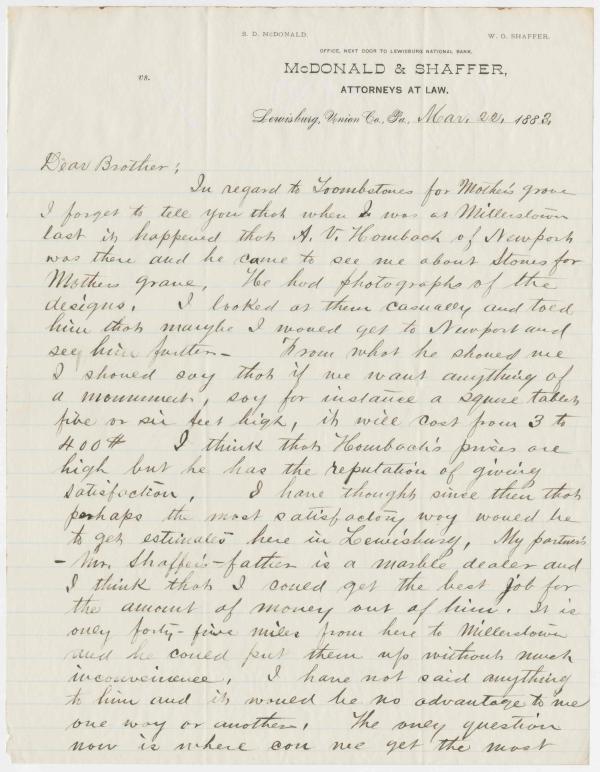 S. D. McDONALD.
W. O. SHAFFER.
OFFICE, NEXT DOOR TO LEWISBURG NATIONAL BANK.
McDONALD & SHAFFER,
ATTORNEYS AT LAW.
vs.
Lewisburg, Union Co., Pa., Mar. 22, 1883.
Dear Brother;
In regard to Toombstones for Mother's grave
I forget to tell you that when I was at Millerstown
last it happened that A. V. Hombach of Newport
was there and he came to see me about Stones for
Mothers grave. He had photographs of the
designs. I looked at them casually and told
him that maybe I would get to Newport and
see him further - From what he showed me
I should say that if we want anything of
a monument, say for instance a square tablet
five or six feet high, it will cost from 3 to
400 $ I think that Hombach's prises are
high but he has the reputation of giving
satisfaction. I have thought since then that
perhaps the most satisfactory way would be
to get estimates here in Lewisburg. My partner's
- Mr. Shaffer's - father is a marble dealer and
I think that I could get the best job for
the amount of money out of him. It is
only forty-five miles from here to Millerstown
and he could put them up without much
inconvenience. I have not said anything
to him and it would be no advantage to me
one way or another. The only question
now is where can we get the most